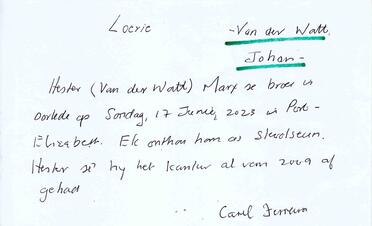 Loerie
-Van der Watt,
Johan-
Hester (Van der Watt) Marx se broer is
oorlede op Sondag, 17 Junie, 2023 in Port-
Elizabeth. Ek onthou hom as skoolseun.
Hester sê hy het kanker al van 2009 af
gehad
Carel Ferreira